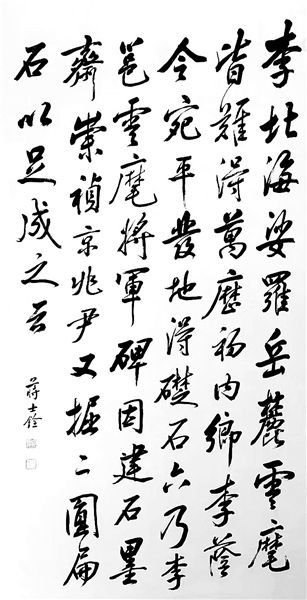 李北海娑羅岳麓雲麾
皆難得萬歷初内鄉李蔭
令宛平發地得礎石六乃李
邕雲麾將軍碑因建石墨
齋崇禎京兆尹又掘二圓扁
石以足成之云
蔣士銓